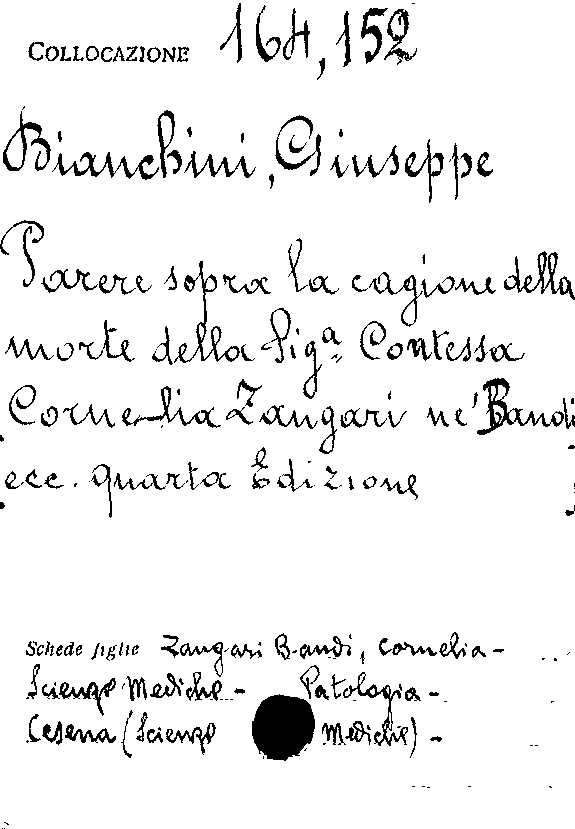 COLLOCAZIONE 164,152
Bianchini, Giuseppe
Parere sopra la cagione della
morte della Sig.ª Contessa
Cornelia Zangari ne' Bandi
ecc. quarta Edizione
Schede figlie Zangari Bandi, Cornelia -
Scienze Mediche - Patologia -
Cesena (Scienze Mediche) -